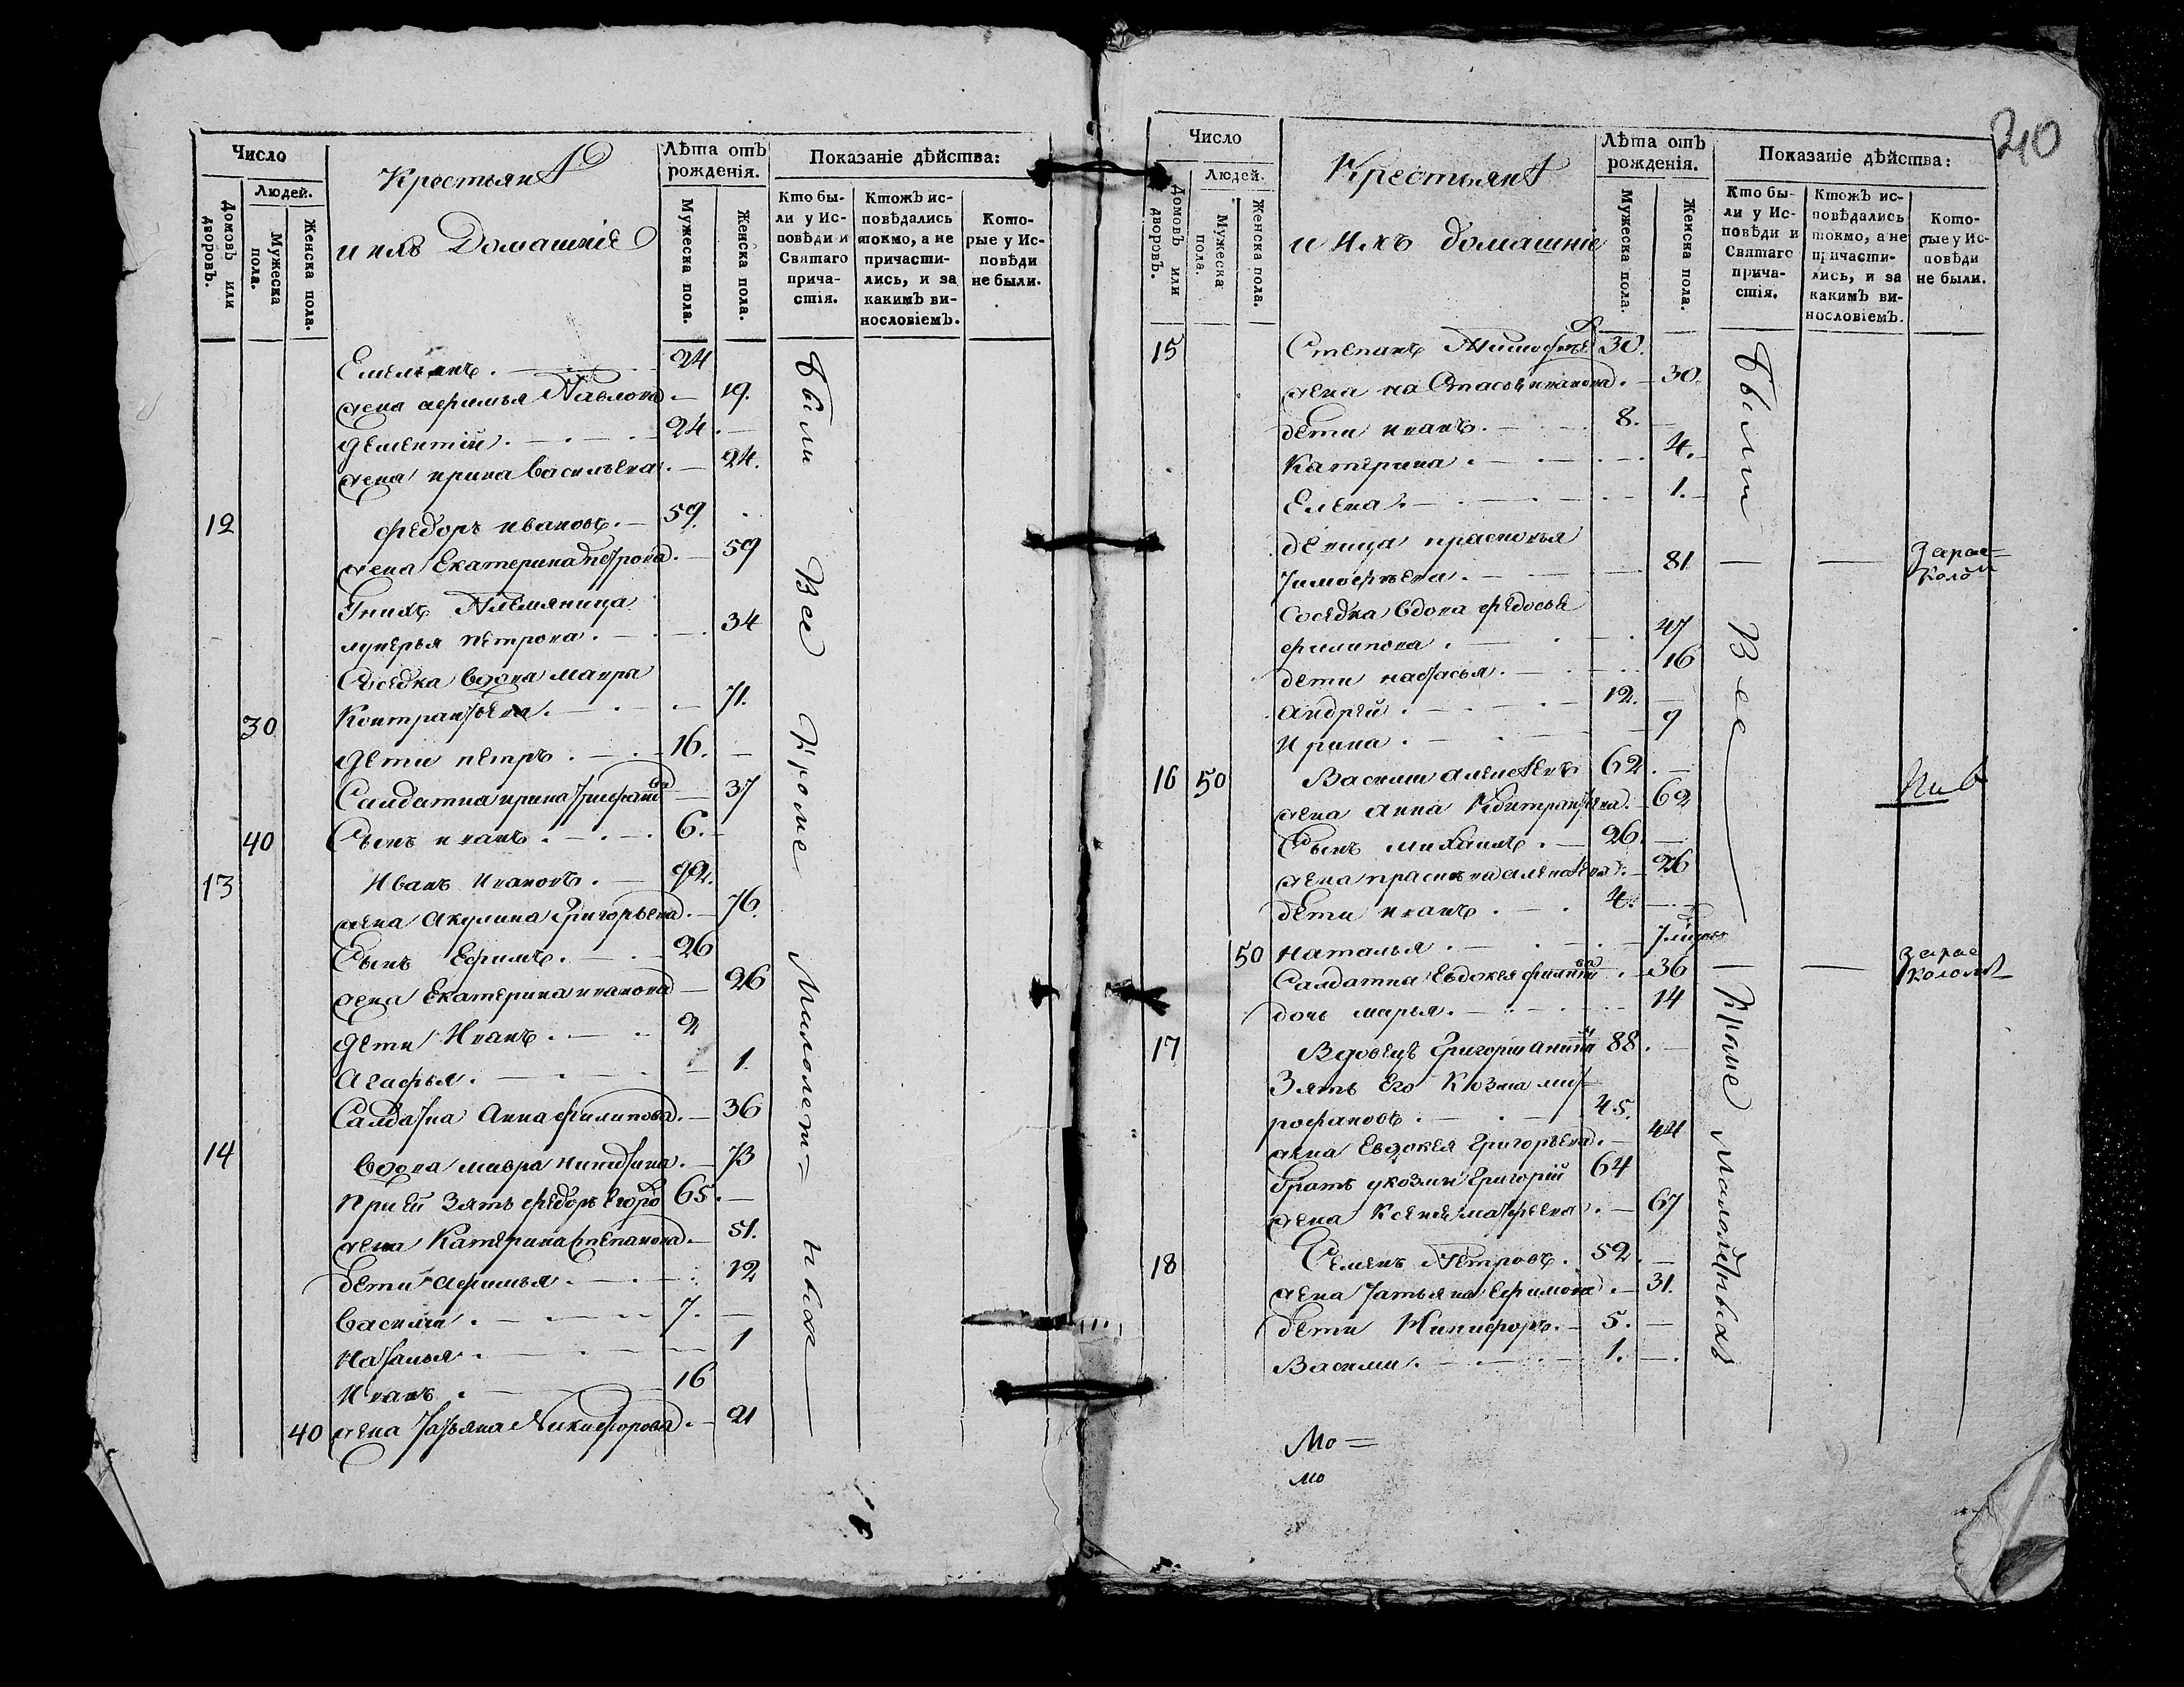 Число
Людей.
Домовъ или дворовъ.
Мужеска пола.
Женска пола.
Крестьян
и ихъ Домашніе
Лѣта отъ рожденія.
Мужеска пола.
Женска пола.
Показаніе дѣйства:
Кто бы-
ли у Ис-
повѣди и
Святаго
прича-
стія.
Ктожъ ис-
повѣдались
токмо, а не
причасти-
лись, и за
какимъ ви-
нословіемъ.
Кото-
рые у Ис-
повѣди
не были.
Емельянъ. 24
жена афимья Павлова. 19.
Дементій. 24.
жена ирина васильева. 24.
12 федоръ ивановъ. 59.
жена Екатерина петрова. 59
У нихъ Племяница
лукерья петрова. 34
Соседка вдова мавра
30 Контратьева. 71.
дети петръ. 16.
Салдатка ирина 37
40 Сынъ иванъ. 6.
13 Иванъ Ивановъ. 92.
жена акулина Григорьева. 76.
Сынъ Ефимъ. 26
жена Екатерина иванова 26
дети Иванъ. 2
Агафья. 1.
Салдатка Анна филипова. 36
14 вдова мавра никитина. 73
При ей Зять федоръ Егоро 65.
жена Катерина степанова. 51.
дети афимья. 12
василий. 7.
Наталья. 1
Иванъ. 16
40 жена Татьяна Никифорова. 21
были Все Кроме Малолет= ныхъ
210
Число
Людей.
Домовъ или дворовъ.
Мужеска пола.
Женска пола.
Крестьян
и Ихъ домашние
Лѣта отъ рожденія.
Мужеска пола.
Женска пола.
Показаніе дѣйства:
Кто бы-
ли у Ис-
повѣди и
Святаго
прича-
стія.
Ктожъ ис-
повѣдались
токмо, а не
причасти-
лись, и за
какимъ ви-
нословіемъ.
Кото-
рые у Ис-
повѣди
не были.
15 Степанъ Тимофее 30.
жена настасья иванова. 30.
дети иванъ. 8.
Катерина. 4.
Елена. 1.
девица прасковья
Тимофеева. 81 Зарас=
коло
Соседка вдова федосья
филипова. 47
дети настасья. 16
андрей. 12.
Ирина. 9
16 50 Василий алексеевъ 62.
жена анна Контратьева. 62
Сынъ михаилъ. 26.
жена 26
дети иванъ. 4.
50 Наталья.
Салдатка Евдокея филипо ва. 36 зарас
коломъ
дочь марья. 14
17 Вдовецъ Григорий 88.
Зять Его Козма мит=
рофановъ. 45.
жена Евдокея Григорьева. 44
Братъ укозмы Григорій 64
жена Ксенья матфеева. 67
18 Семенъ Петровъ. 52.
жена Татьяна Ефимова. 31.
дети Никифоръ. 5.
Василий. 1.
были Все Кроме малолетныхъ
Мо=
мо